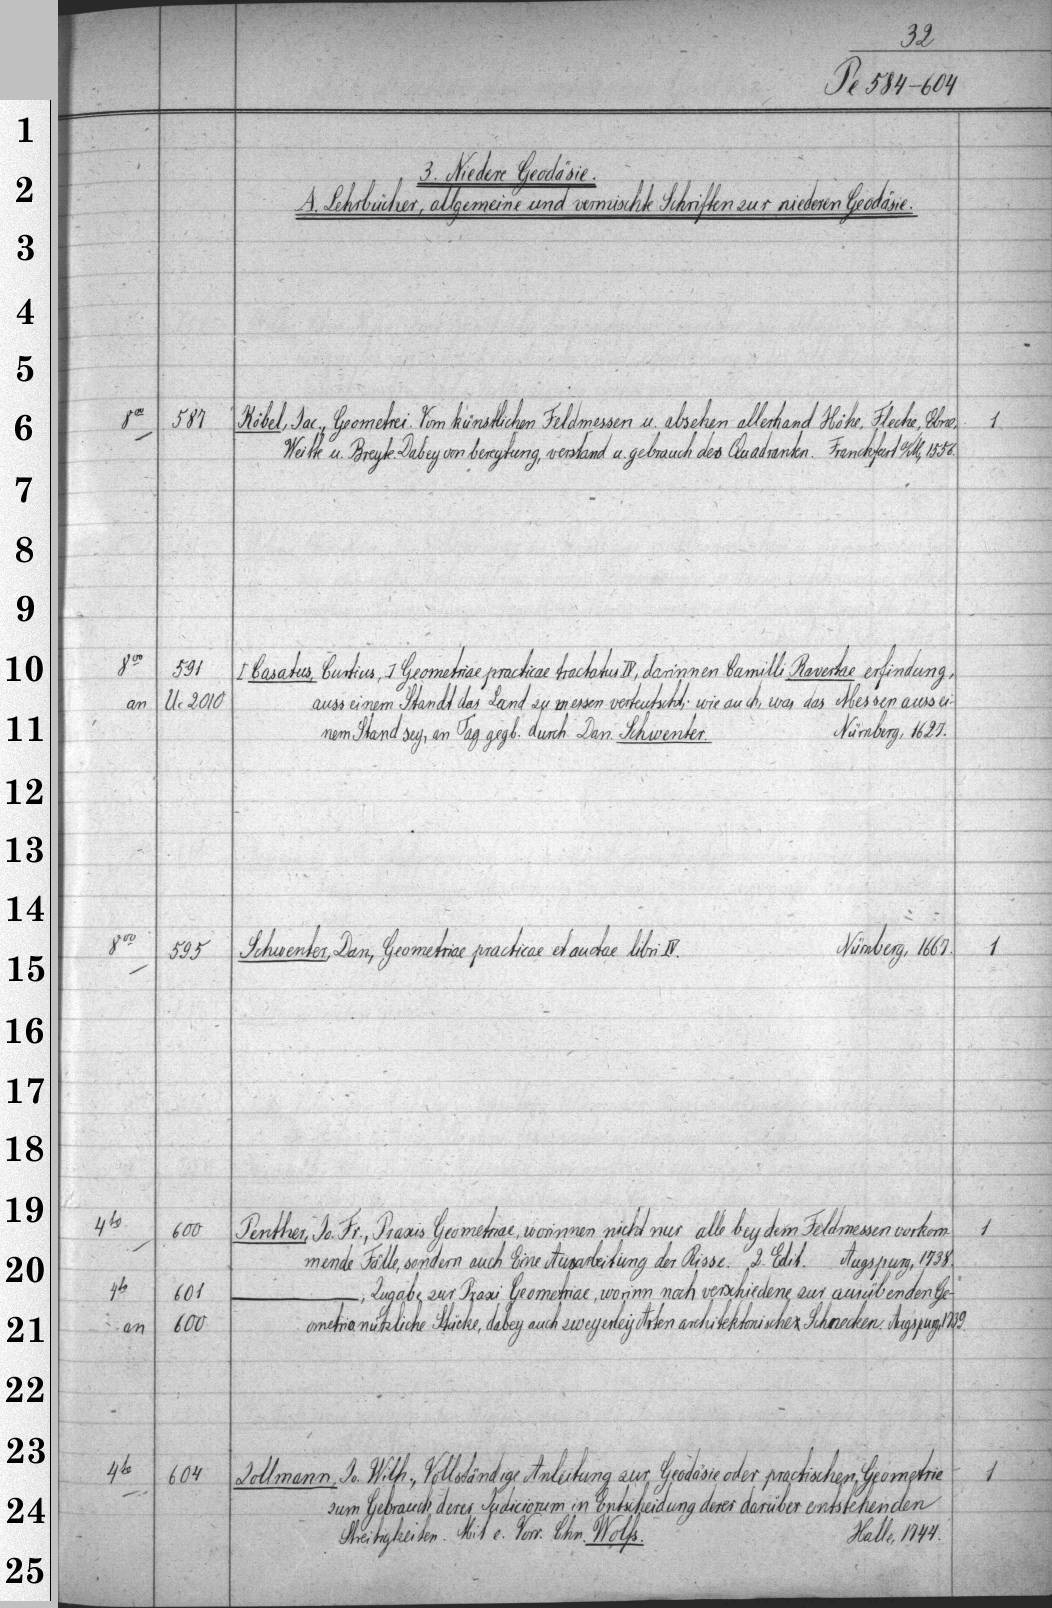 32
Pe 584-604
3. Niedere Geodäsie.
A. Lehrbücher, allgemeine und vermischte Schriften zur niederen Geodäsie.
1
2
3
4
5
6
7
8
9
10
11
12
13
14
15
16
17
18
19
20
21
22
23
24
25
8vo 587 Köbel, Jac., Geometrei. Vom künstlichen Feldmessen u. absehen allerhand Höhe, Fleche, Ebne, 1
Weitte u. Breyte. Dabey von bereytung, verstand u. gebrauch des Quadranten. Franckfurt a/M, 1556.
8vo 591 I Casatus, Curtius, I Geometriae practicae tractatus IV, darinnen Camilli Ravertae erfindung,
an Uc 2010 auss einem Standt das Land zu messen verteutscht; wie auch, was das Messen auss ei-
nem Stand sey, an Tag gegb. durch Dan. Schwenter. Nürnberg, 1627.
8vo 595 Schwenter, Dan., Geometriae practicae et auctae libri IV. Nürnberg, 1667. 1
4to 600 Penther, Jo. Fr., Praxis Geometriae, worinnen nicht nur alle bey dem Feldmessen vorkom 1
mende Fälle, sondern auch Eine Ausarbeitung der Risse. 2. Edit. Augspurg, 1738.
4to 601 ———, Zugabe zur Praxi Geometriae, worinn noch verschiedene zur ausübenden Ge-
an 600 ometrie nützliche Stücke, dabey auch zweyerley Arten architektonischer Schnecken. Augspurg, 1739
4to 604 Zollmann, Jo. Wilh., Vollständige Anleitung zur Geodäsie oder practischen Geometrie 1
zum Gebrauch derer Judiciorum in Entscheidung derer darüber entstehenden
Streitigkeiten. Mit e. Vorr. Chn. Wolfs. Halle, 1744.